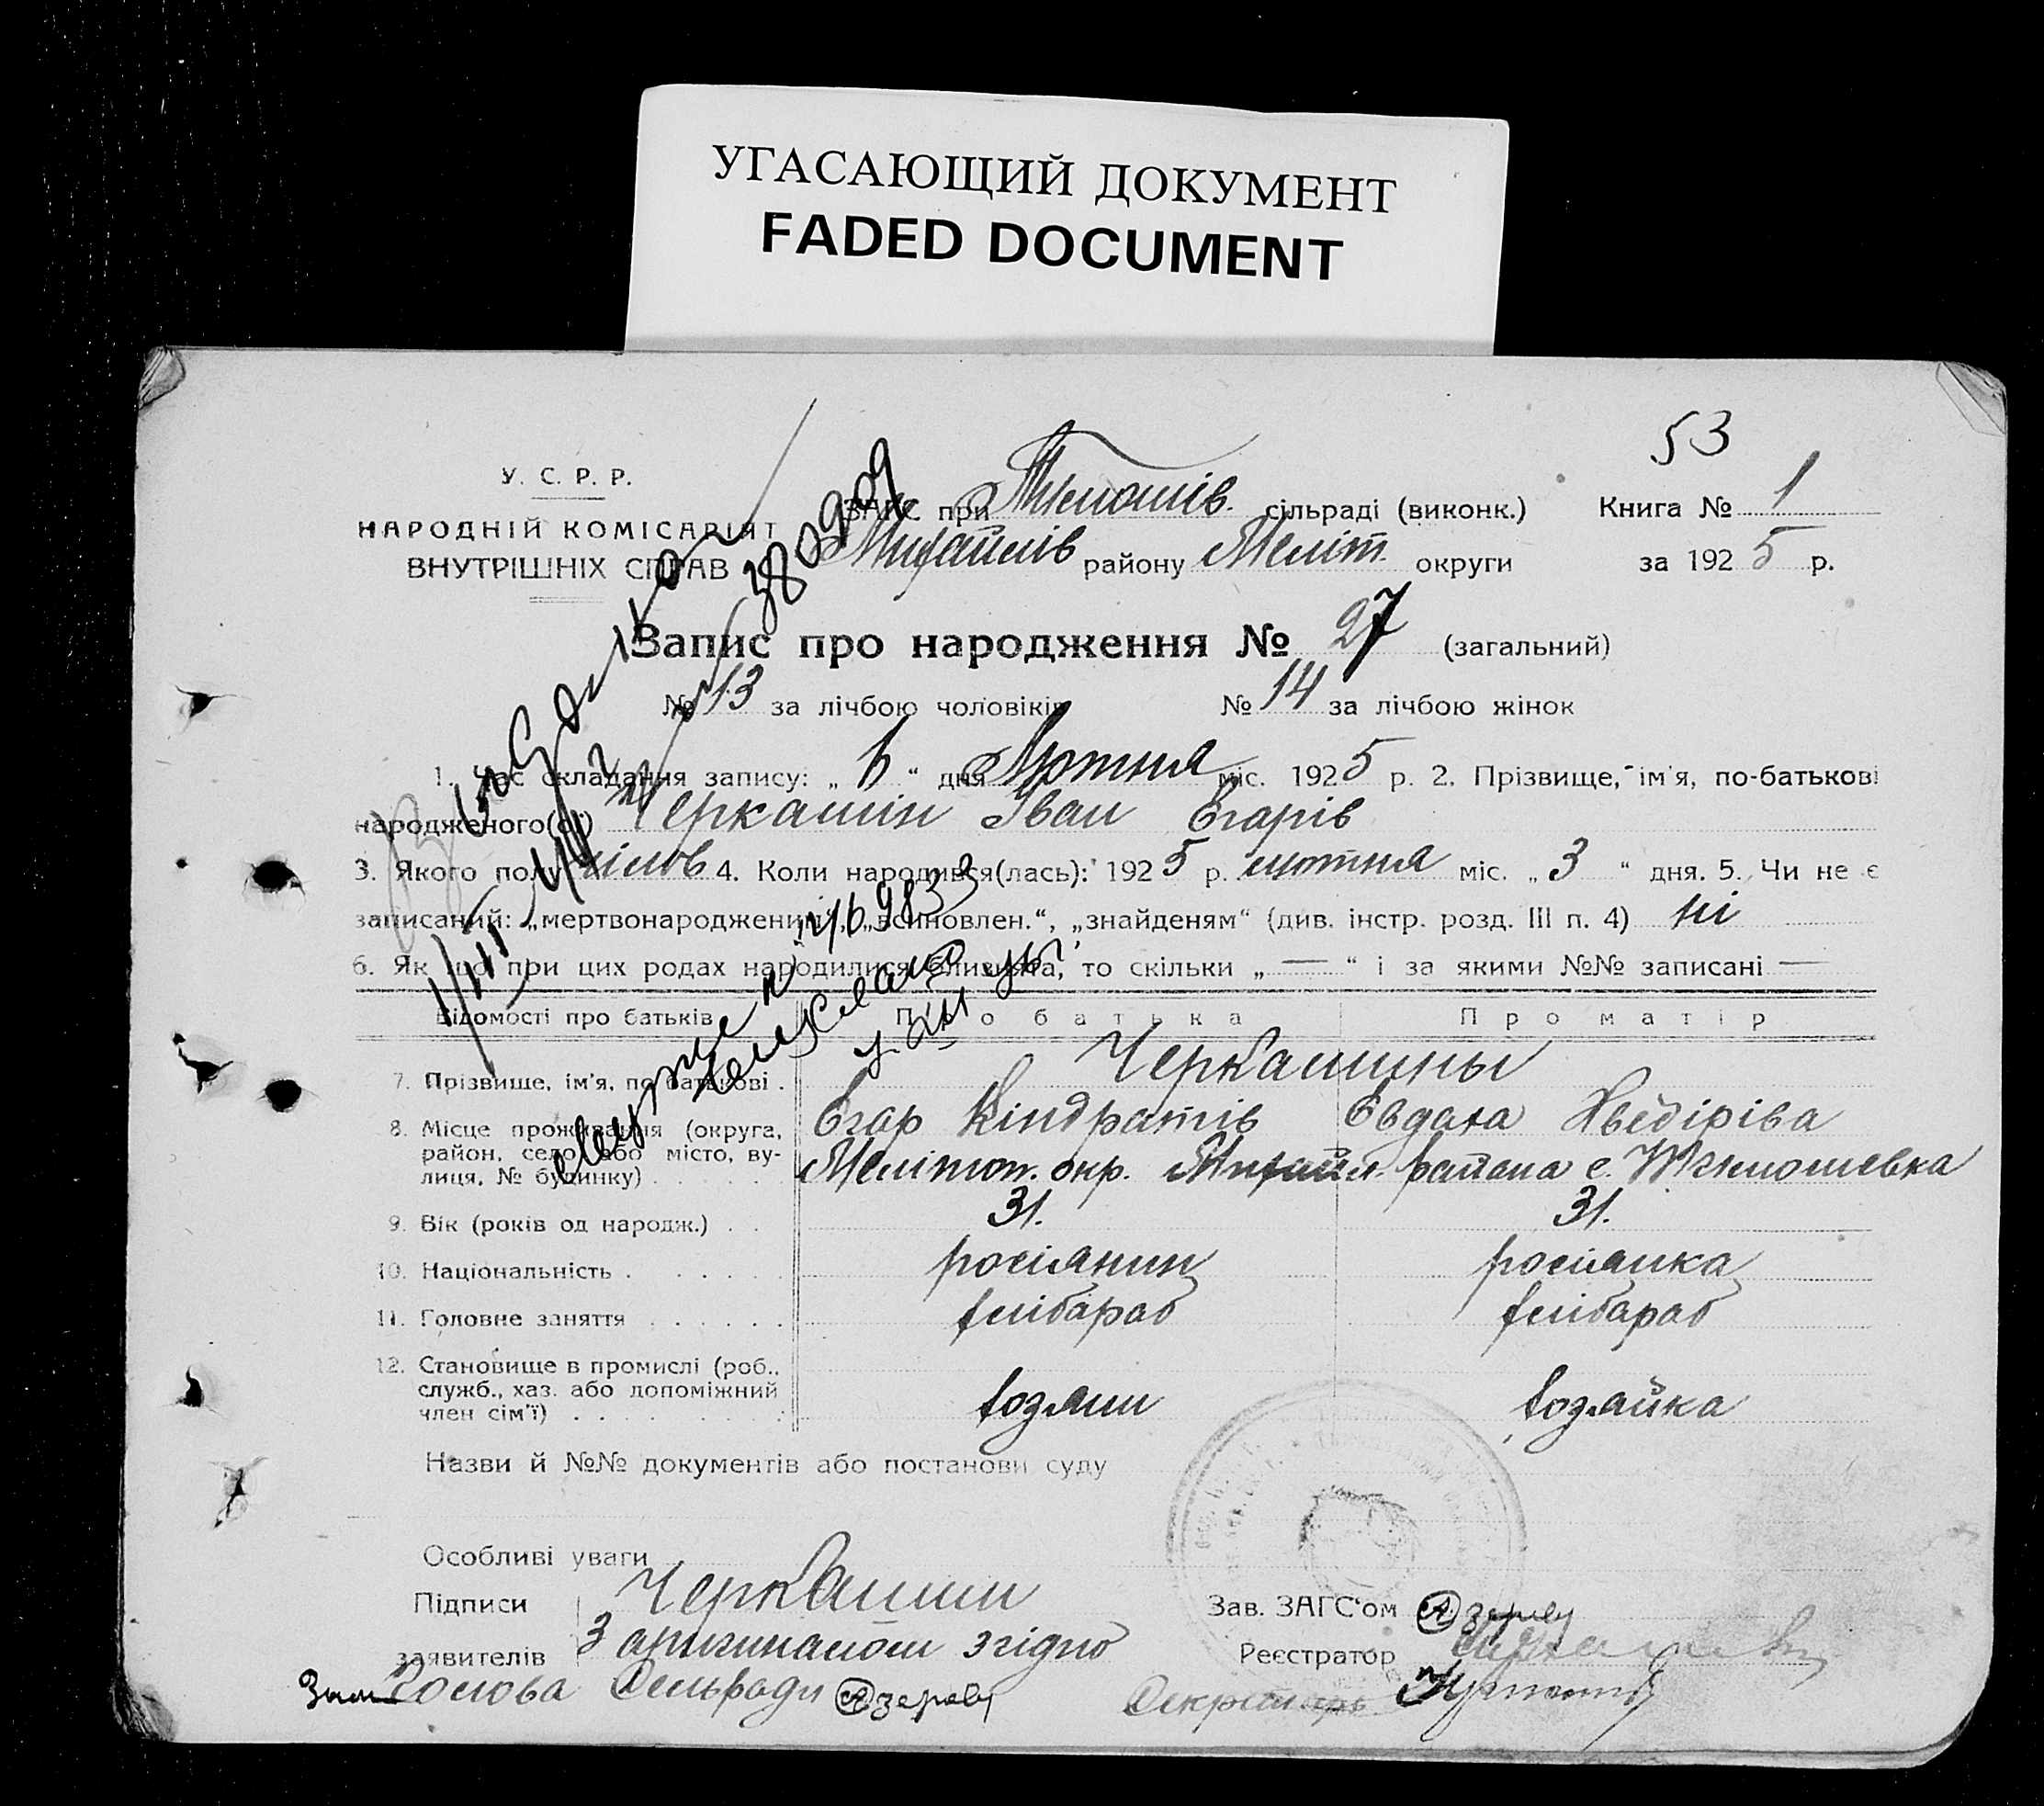 УГАСАЮЩИЙ ДОКУМЕНТ
FADED DOCUMENT
53
У. С. Р. Р.
НАРОДНІЙ КОМІСАРІЯТ
ВНУТРІШНІХ СПРАВ
ЗАГС при сільраді (виконк.) Книга № 1
Михайлів району Меліт. округи за 1925 р.
Запис про народження № 27 (загальний)
№ 13 за лічбою чоловіків № 14 за лічбою жінок
1. Час складання запису: „ 6 “ дня Лютня міс. 1925 р. 2. Прізвище, ім'я, по-батькові
народженого(ої) Черкашин Іван Егарів
3. Якого полу 4. Коли народився(лась): 1925 р. лютня міс. „ 3 “ дня. 5. Чи не є
записаний: „мертвонароджений“, „всиновлен.“, „знайденям“ (див. інстр. розд. III п. 4) ні
6. Як що при цих родах народилися близнята, то скільки „ — “ і за якими №№ записані —
Відомості про батьків Про батька Про матір
Черкашины
7. Прізвище, ім'я, по батькові .
Егар Кіндратів Евдаха Хведіріва
8. Місце проживання (округа,
район, село, або місто, ву-
лиця, № будинку)
Мелітоп. окр. Михайл. района с.
9. Вік (років од народж.) . . 31. 31.
10. Національність . росіянин росіянка
11. Головне заняття хлібараб хлібараб
12. Становище в промислі (роб.,
служб., хаз. або допоміжний
член сім'ї) хозяин хозяйка
Назви й №№ документів або постанови суду
Особливі уваги
Підписи Черкашин Зав. ЗАГС'ом
заявителів З аригиналом згідно Реєстратор
Зам Голова Сельради Секретарь